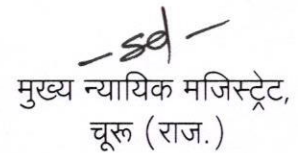 -sd-
मुख्य न्यायिक मजिस्ट्रेट,
चूरू (राज.)